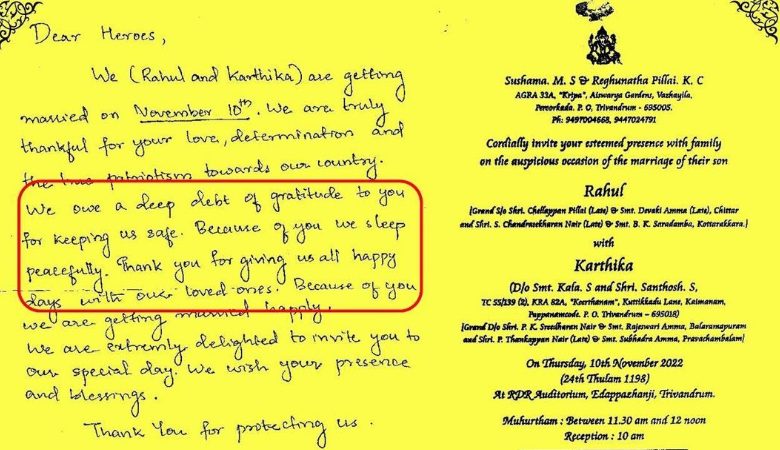 Dear Heroes,
We (Rahul and Karthika) are getting
married on November 10th. We are truly
thankful for your love, determination and
the true patriotism towards our country.
We owe a deep debt of gratitude to you
for keeping us safe. Because of you we sleep
peacefully. Thank you for giving us all happy
days with our loved ones. Because of you
we are getting married happily.
We are extremely delighted to invite you to
our special day. We wish your presence
and blessings.
Thank You for protecting us.
Sushama. M. S & Reghunatha Pillai. K. C
AGRA 33A, "Kripa", Aiswarya Gardens, Vazhayila,
Peroorkada. P. O, Trivandrum - 695005.
Ph: 9497004668, 9447024791
Cordially invite your esteemed presence with family
on the auspicious occasion of the marriage of their son
Rahul
[Grand S/o Shri. Chellappan Pillai (Late) & Smt. Devaki Amma (Late), Chittar
and Shri. S. Chandrasekharan Nair (Late) & Smt. B. K. Saradamba, Kottarakkara.]
with
Karthika
(D/o Smt. Kala. S and Shri. Santhosh. S,
TC 55/139 (2), KRA 82A, "Keerthanam", Kuttikkadu Lane, Kaimanam,
Pappanamcode. P. O, Trivandrum – 695018)
[Grand D/o Shri. P. K. Sreedharan Nair & Smt. Rajeswari Amma, Balaramapuram
and Shri. P. Thankappan Nair (Late) & Smt. Subhadra Amma, Pravachambalam]
On Thursday, 10th November 2022
(24th Thulam 1198)
At RDR Auditorium, Edappazhanji, Trivandrum.
Muhurtham : Between 11.30 am and 12 noon
Reception : 10 am